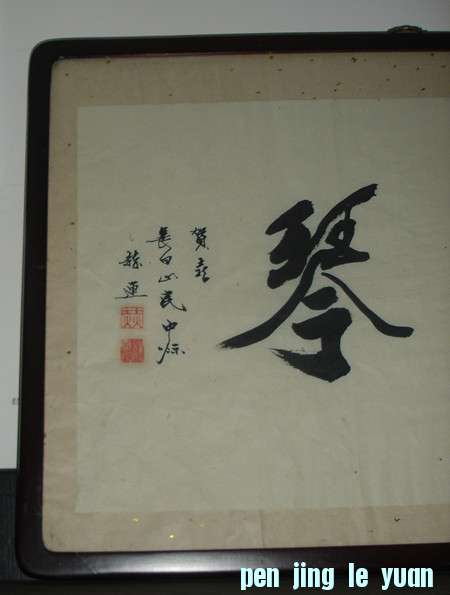 琴
賀喜
長白山民中秋
pen jing le yuan